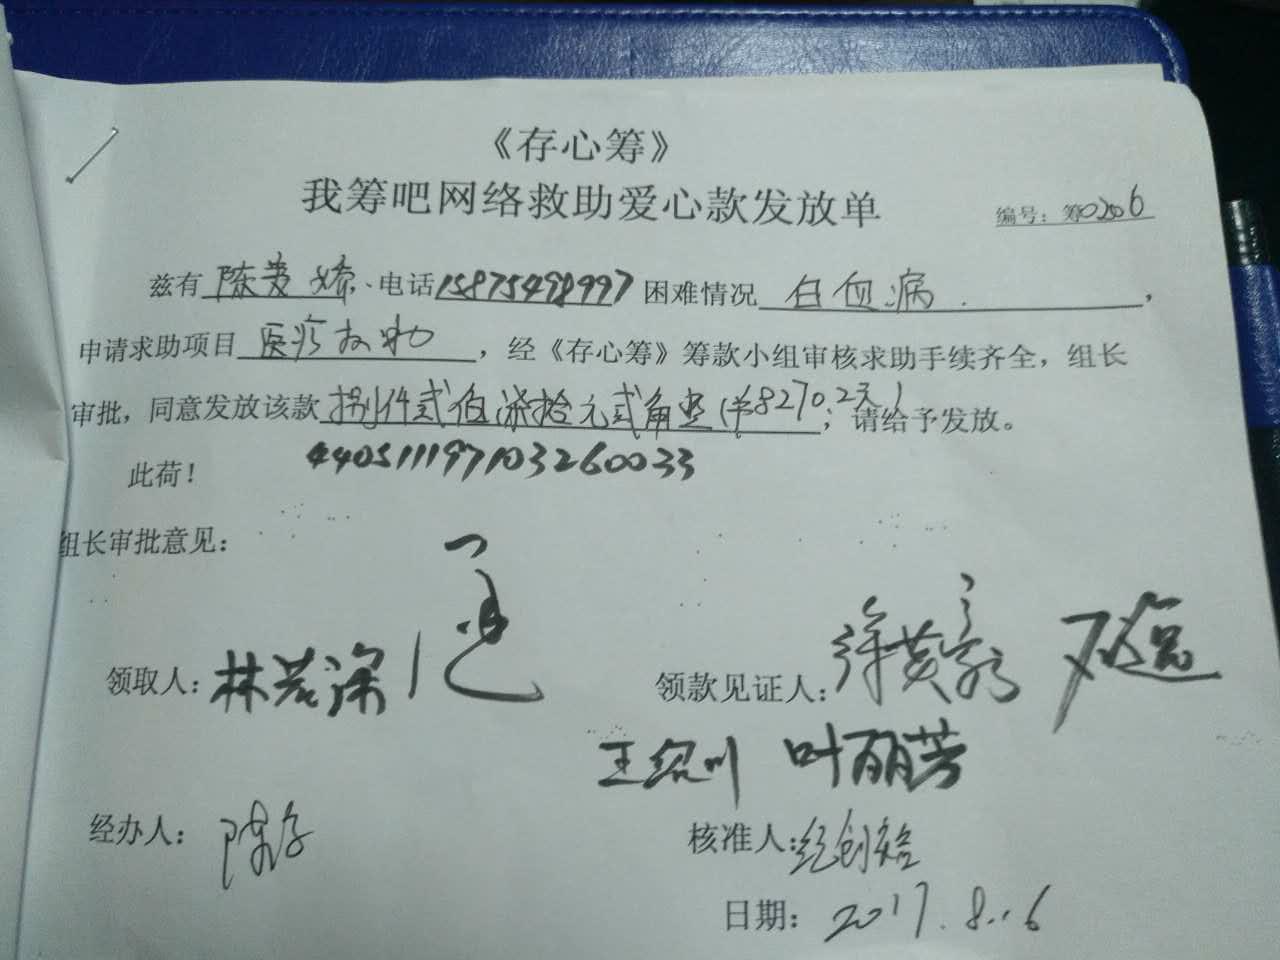 《存心筹》
我筹吧网络救助爱心款发放单
编号：筹0206
兹有 陈 娇、电话15875498997 困难情况 白血病，
申请求助项目 医疗救助，经《存心筹》筹款小组审核求助手续齐全，组长
审批，同意发放该款 捌仟贰佰柒拾元贰角整(¥8270.2元)，请给予发放。
此荷！ 440511197103260033
组长审批意见：
领取人： 林
领款见证人：
王绍川 叶丽芳
经办人： 陈
核准人：
日期： 2017.8.16